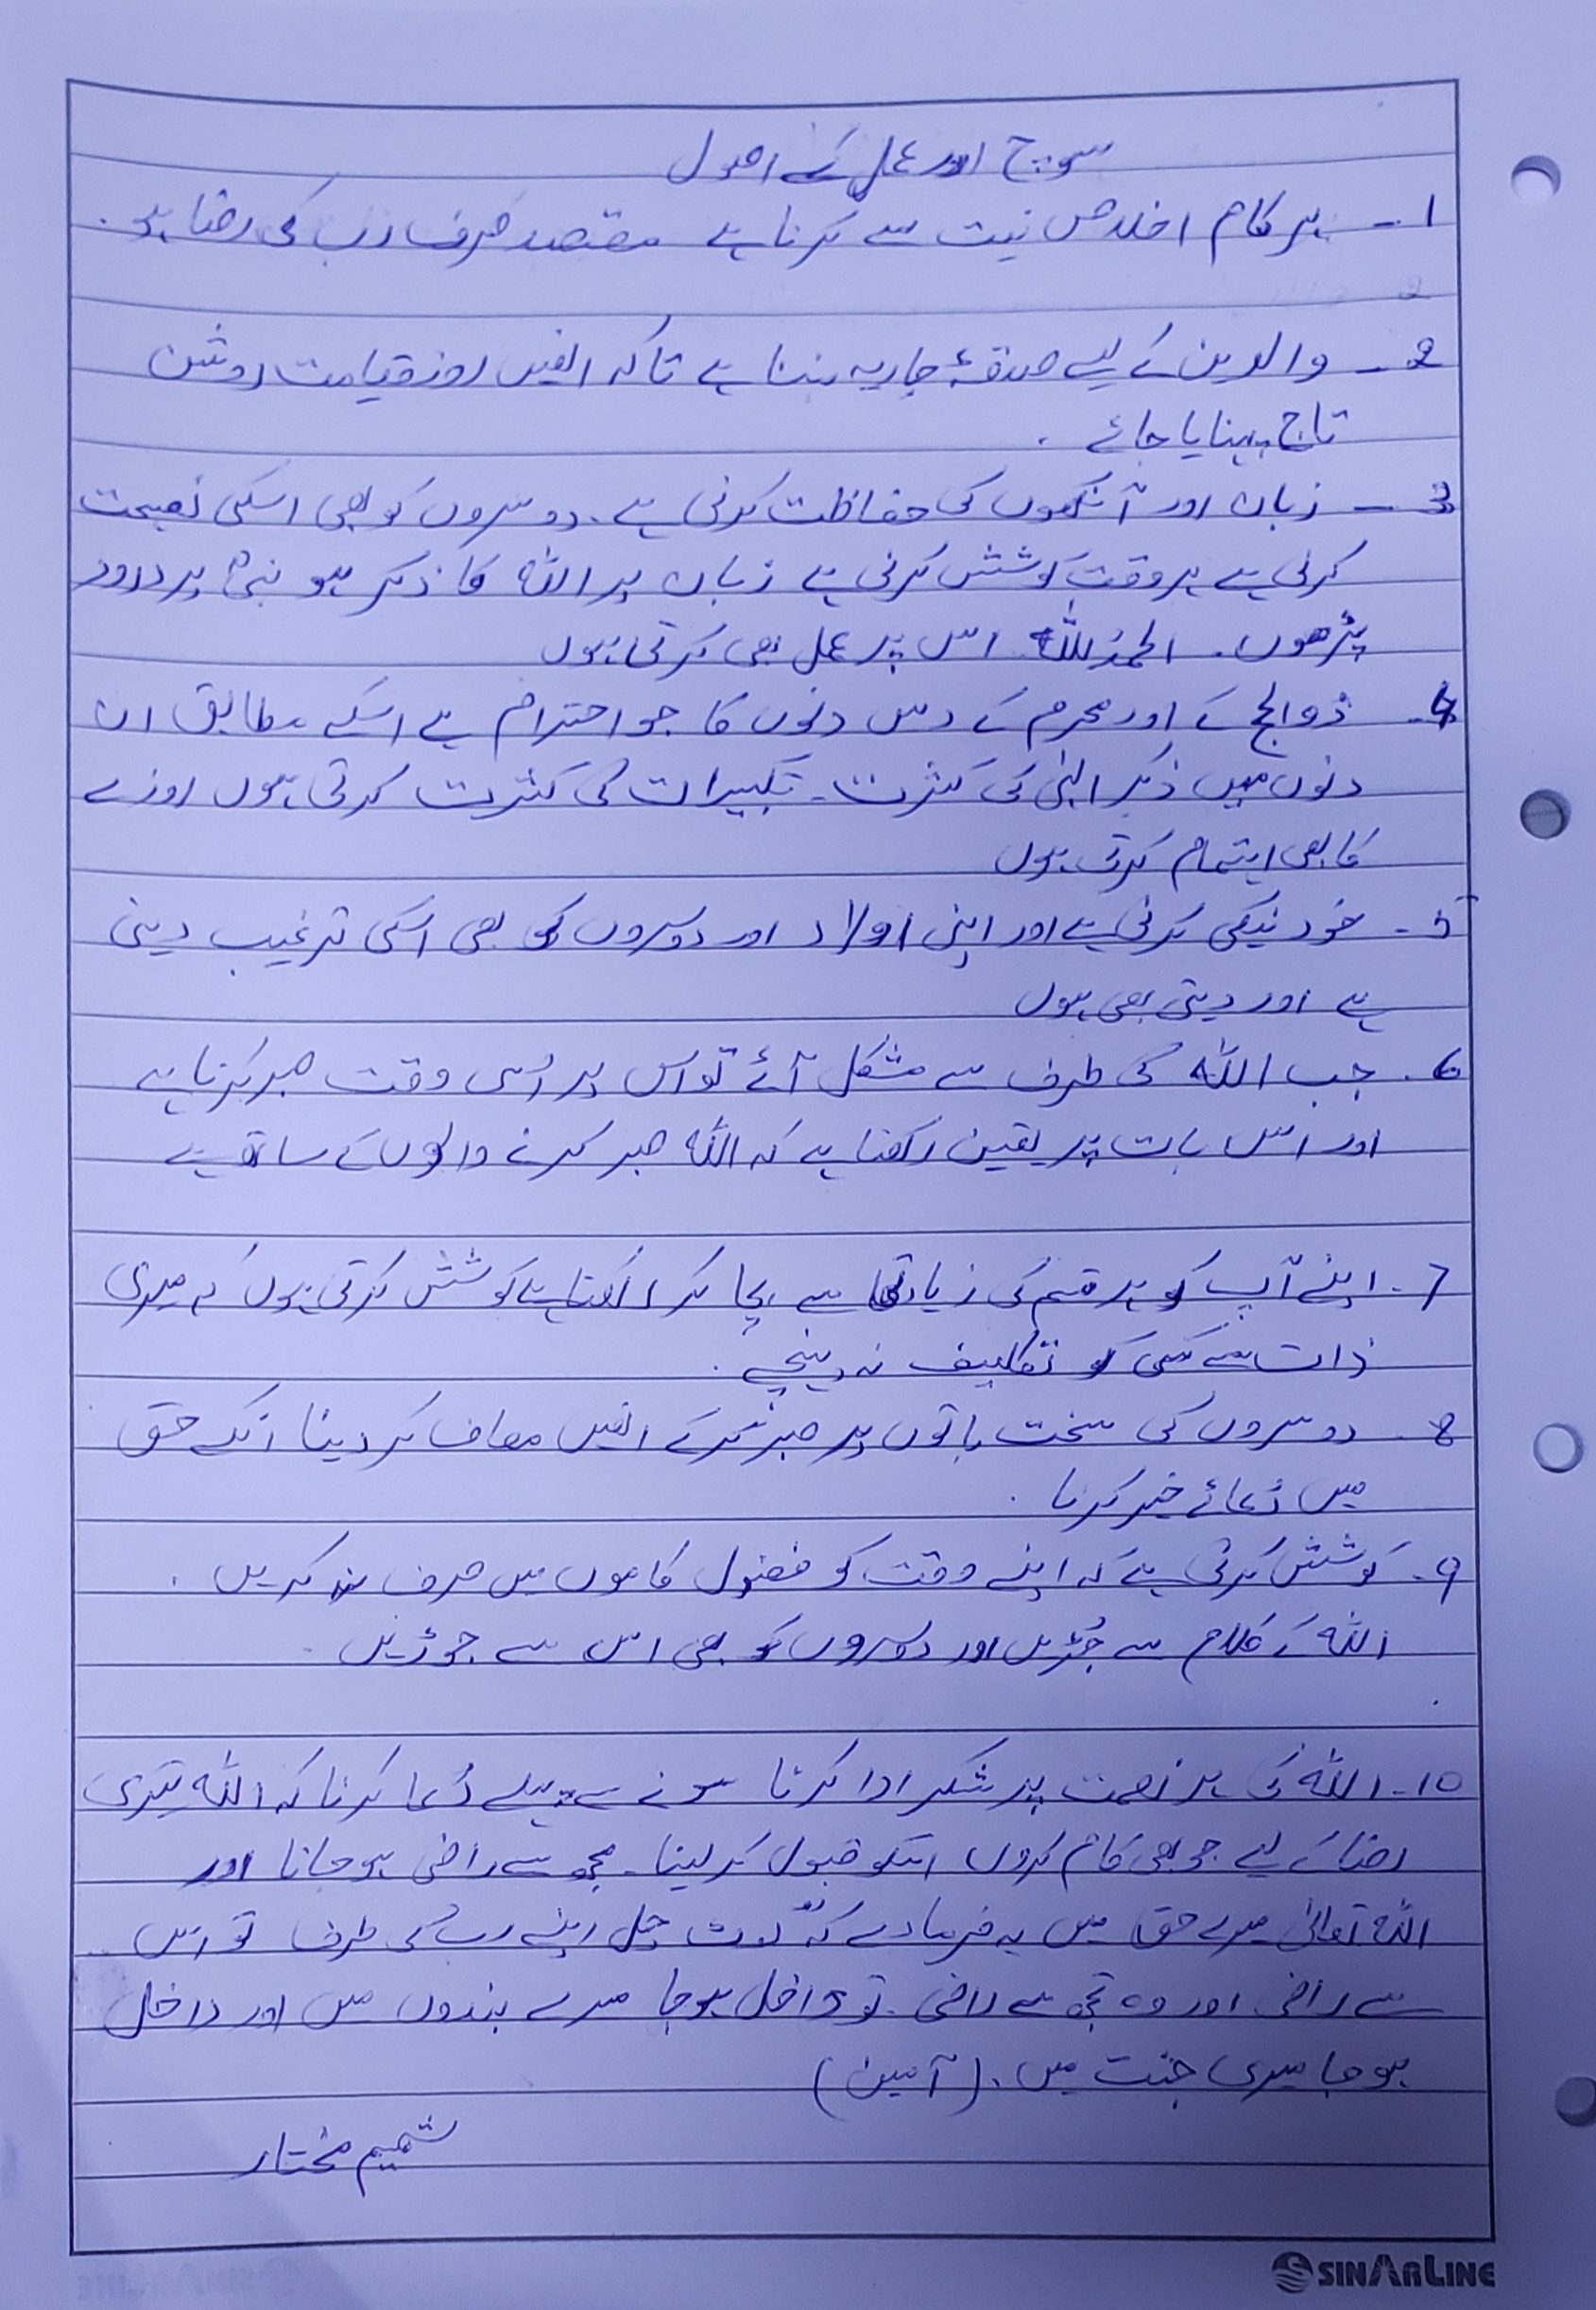 سوچ اور عمل کے اصول
1- ہر کام اخلاص نیت سے کرنا ہے مقصد صرف رب کی رضا ہو.
2- والدین کے لیے صدقۂ جاریہ بننا ہے تاکہ انھیں روز قیامت روشن
تاج پہنایا جائے.
3- زبان اور آنکھوں کی حفاظت کرنی ہے. دوسروں کو بھی اسکی نصیحت
کرنی ہے ہر وقت کوشش کرنی ہے زبان پر اللہ کا ذکر ہو نبیؐ پر درود
پڑھوں. الحمدُللہ اس پر عمل بھی کرتی ہوں
4- ذوالحج کے اور محرم کے دس دنوں کا جو احترام ہے اسکے مطابق ان
دنوں میں ذکر الہٰی کی کثرت. تکبیرات کی کثرت کرتی ہوں روزے
کا بھی اہتمام کرتی ہوں
5- خود نیکی کرنی ہے اور اپنی اولاد اور دوسروں کو بھی اسکی ترغیب دینی
ہے اور دیتی بھی ہوں
6. جب اللہ کی طرف سے مشکل آئے تو اس پر اُسی وقت صبر کرنا ہے
اور اس بات پر یقین رکھنا ہے کہ اللہ صبر کرنے والوں کے ساتھ ہے
7- اپنے آپ کو ہر قسم کی زیادتی سے بچا کر رکھنا ہے کوشش کرتی ہوں کہ میری
ذات سے کسی کو تکلیف نہ پہنچے.
8- دوسروں کی سخت باتوں پر صبر کرکے انھیں معاف کر دینا انکے حق
میں دُعائے خیر کرنا.
9- کوشش کرنی ہے کہ اپنے وقت کو فضول کاموں میں صرف نہ کریں.
اللہ کے کلام سے جُڑیں اور دوسروں کو بھی اس سے جوڑیں.
10- اللہ کی ہر نعمت پر شکر ادا کرنا سونے سے پہلے دُعا کرنا کہ اللہ تیری
رضا کے لیے جو بھی کام کروں اسکو قبول کر لینا. مجھ سے راضی ہو جانا اور
اللہ تعالیٰ میرے حق میں یہ فرما دے کہ "لوٹ چل اپنے رب کی طرف تو اس
سے راضی اور وہ تجھ سے راضی. تو داخل ہو جا میرے بندوں میں اور داخل
ہو جا میری جنت میں. (آمین)
شمیم مختار
SINARLINE